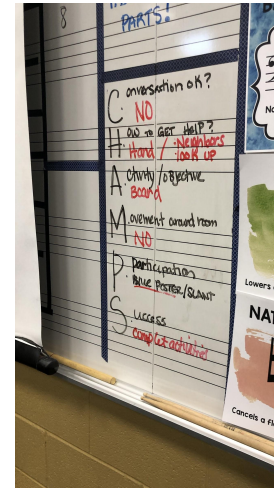 8
PARTS!
Conversation OK?
NO
How to GET HELP?
Hand / Neighbors
look up
Activity/objective
Board
Movement around room
NO
participation
BLUE POSTER/SLANT
Success
Complet activities
Lowers
NAT
Cancels a fl